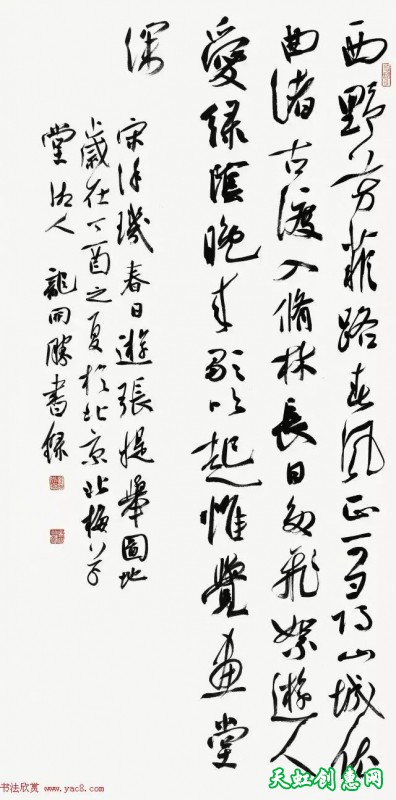 西野芳菲路春風正可尋山城依
曲渚古渡入脩林長日多飛絮遊人
愛緑蔭晚来歌吹起惟覺畫堂
深
宋徐璣春日遊張提舉園池
歲在丁酉之夏於北京北梅草
堂 人 龍開勝書録
书法欣赏 www.yac8.com
天虹创意网